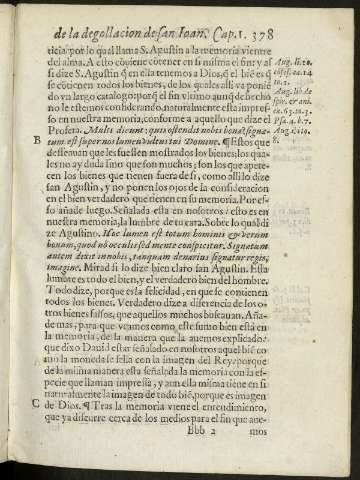 de la degollacion de san Ioan. Cap. 1. 378
ticia por lo qual llama S. Agustin a la memoria vientre
del alma. A esto cõuiene contener en si misma el fin: y assi
si dize S. Agustin q̃ en ella tenemos a Dios, q̃ el biẽ es q̃
se cõtienen todos los bienes, de los quales alli va poniẽ
do vn largo catalogo: porq̃ el fin vltimo aunq̃ de hecho
no le estemos considerando, naturalmente esta impres
so en nuestra memoria, conforme a aquello que dize el
Profeta. Multi dicunt: quis ostendit nobis bona? signa-
B tum est super nos lumen vultus tui Domine. ¶ Estos que
desseauan que les fuessen mostrados los bienes, los qua
les no ay duda sino que son muchos; son los que apete-
cen los bienes que tienen fuera de si, como alli lo dize
san Agustin, y no ponen los ojos de la consideracion
en el bien verdadero que tienen en su memoria. Por es-
so añade luego. Señalada esta en nosotros: esto es en
nuestra memoria, la lumbre de tu cara. Sobre lo qual di
ze Agustino. Hoc lumen est totum hominis & verum
bonum, quod nõ occulis sed mente conspicitur. Signatum
autem dixit in nobis, tanquam denarius signatur regis,
imagine. Mirad si lo dize bien claro san Agustin. Esta
lumbre es todo el bien, y el verdadero bien del hombre.
Todo dize, porque es la felicidad, en que se contienen
todos los bienes. Verdadero dize a diferencia de los o-
tros bienes falsos, que aquellos muchos buscauan. Aña-
de mas, para que veamos como este sumo bien està en
la memoria, de la manera que la auemos explicado:
que dixo Dauid estar señalado en nosotros aquel biẽ co
mo la moneda se sella con la imagen del Rey: porque
de la misma manera esta señalada la memoria con la es-
pecie que llaman impressa, y aun ella misma tiene en si
naturalmente la imagen de todo biẽ, porque es imagen
C de Dios. ¶ Tras la memoria viene el entendimiento,
que ya discurre cerca de los medios para el fin que aue-
Bbb 2 mos
Aug. li. 10.
cõfes. ca. 14
Aug. lib. de
spir. & ani.
Psa. 4. b. 7.